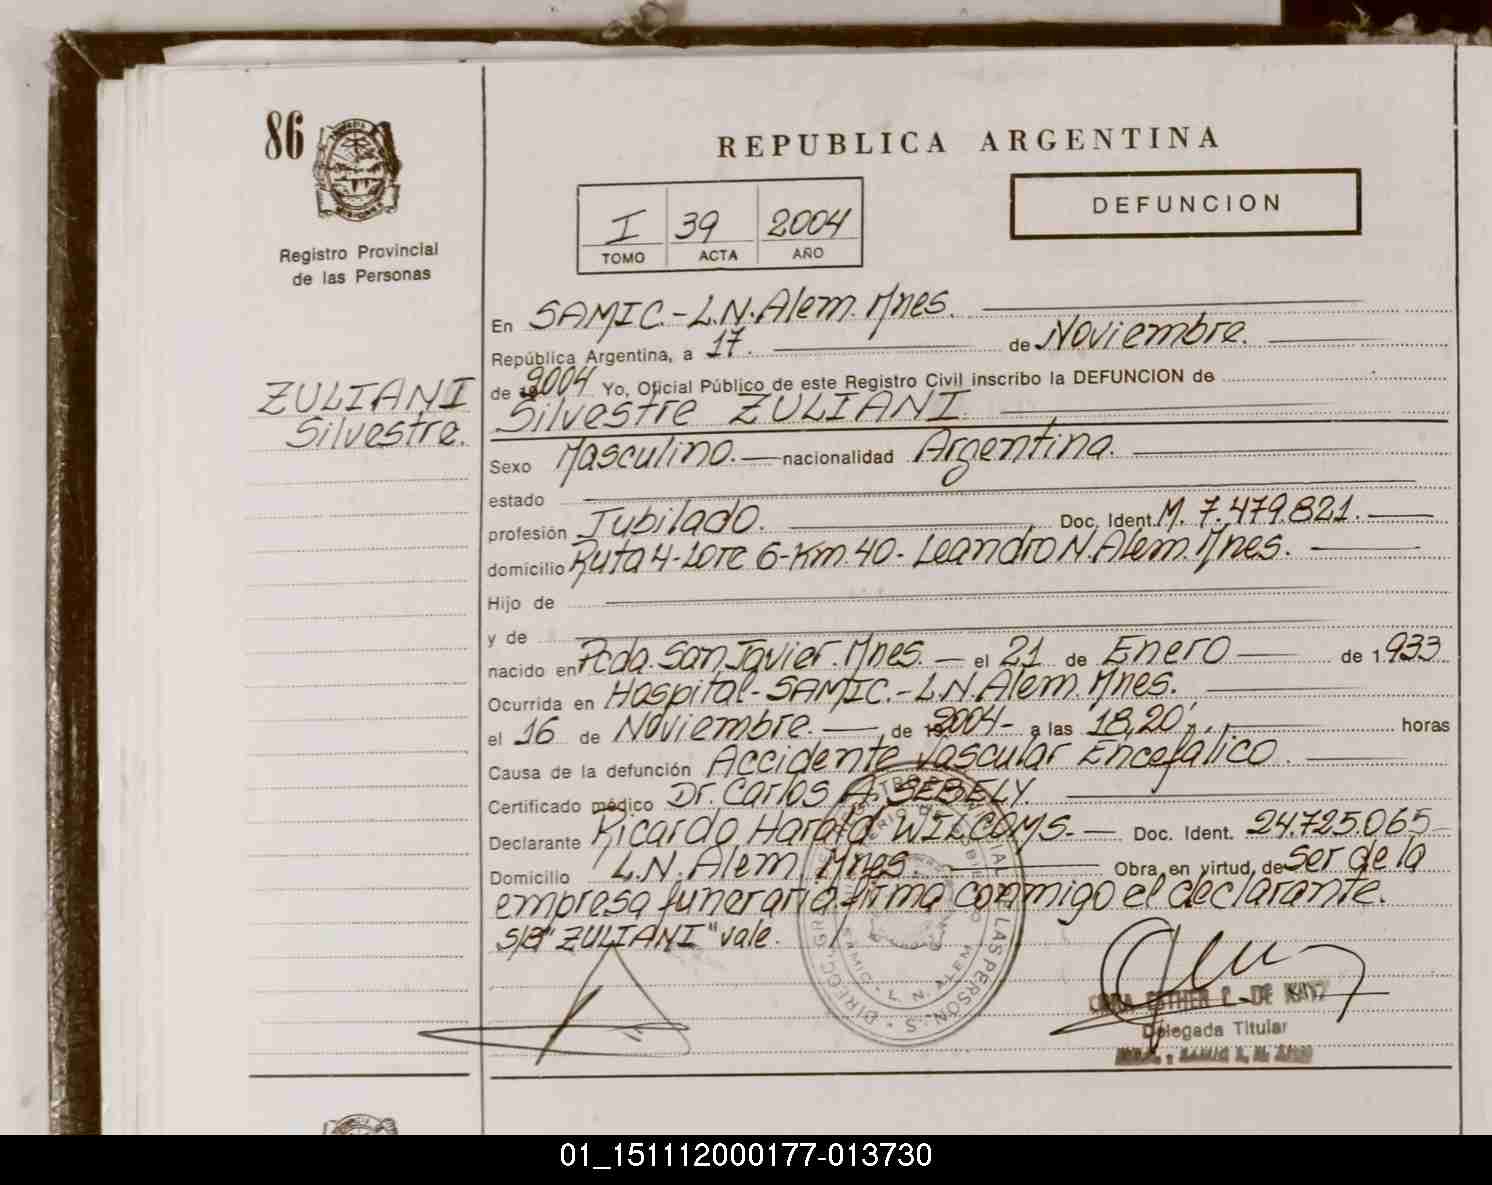 86
REPUBLICA ARGENTINA
DEFUNCION
I 39 2004
TOMO ACTA AÑO
Registro Provincial
de las Personas
En SAMIC.-L.N.Alem.Mnes.
República Argentina, a 17. de Noviembre.
de 2004 Yo, Oficial Público de este Registro Civil inscribo la DEFUNCION de
ZULIANI
Silvestre.
Silvestre ZULIANI.
Sexo Masculino. nacionalidad Argentina.
estado
profesión Jubilado. Doc. Ident. M. 7.479.821.
domicilio Ruta 4-Lote 6-Km.40- Leandro N. Alem. Mnes.
Hijo de
y de
nacido en Pcda. San Javier. Mnes. el 21 de Enero de 1.933
Ocurrida en Hospital-SAMIC.-L.N.Alem Mnes.
el 16 de Noviembre. de 2004- a las 18,20', horas
Causa de la defunción Accidente Vascular Encefálico.
Certificado médico Dr. Carlos A. SEBELY.
Declarante Ricardo Harald WILCOMS.- Doc. Ident. 24.725.065
Domicilio L.N. Alem, Mnes Obra en virtud de ser de la
empresa funeraria firma conmigo el declarante.
S/B "ZULIANI" vale.
SAMIC - L. N. ALEM
ESTHER C. DE
Delegada Titular
01_151112000177-013730